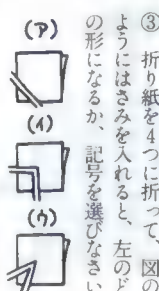 ③ 折り紙を4つに折って、図の
ようにはさみを入れると、左のど
の形になるか、記号を選びなさい
(ア)
(イ)
(ウ)